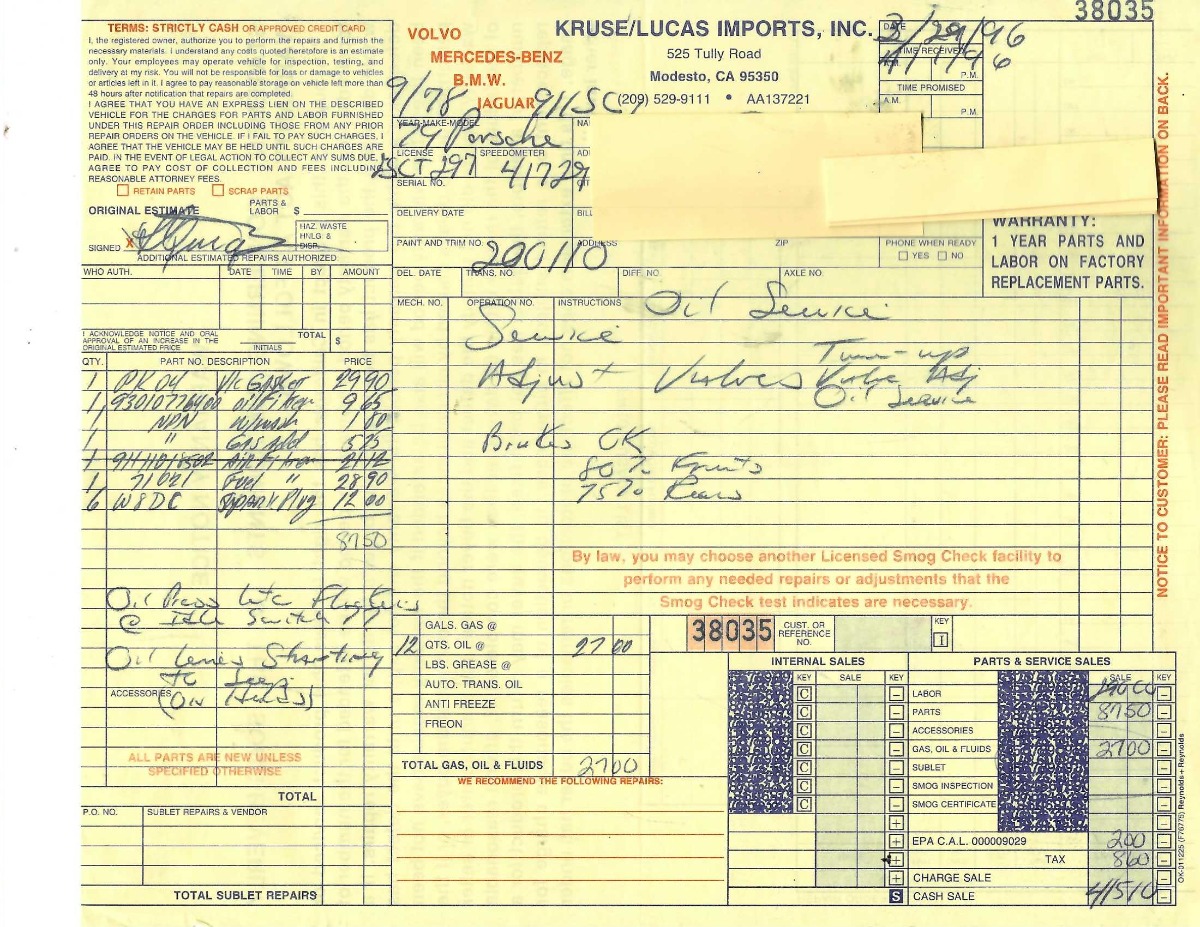 38035
TERMS: STRICTLY CASH OR APPROVED CREDIT CARD
I, the registered owner, authorize you to perform the repairs and furnish the
necessary materials. I understand any costs quoted heretofore is an estimate
only. Your employees may operate vehicle for inspection, testing, and
delivery at my risk. You will not be responsible for loss or damage to vehicles
or articles left in it. I agree to pay reasonable storage on vehicle left more than
48 hours after notification that repairs are completed.
I AGREE THAT YOU HAVE AN EXPRESS LIEN ON THE DESCRIBED
VEHICLE FOR THE CHARGES FOR PARTS AND LABOR FURNISHED
UNDER THIS REPAIR ORDER INCLUDING THOSE FROM ANY PRIOR
REPAIR ORDERS ON THE VEHICLE. IF I FAIL TO PAY SUCH CHARGES, I
AGREE THAT THE VEHICLE MAY BE HELD UNTIL SUCH CHARGES ARE
PAID. IN THE EVENT OF LEGAL ACTION TO COLLECT ANY SUMS DUE, I
AGREE TO PAY COST OF COLLECTION AND FEES INCLUDING
REASONABLE ATTORNEY FEES.
RETAIN PARTS SCRAP PARTS
ORIGINAL ESTIMATE PARTS & LABOR $
SIGNED X
HAZ. WASTE HNLG. & DISP.
ADDITIONAL ESTIMATED REPAIRS AUTHORIZED
WHO AUTH. DATE TIME BY AMOUNT
I ACKNOWLEDGE NOTICE AND ORAL
APPROVAL OF AN INCREASE IN THE
ORIGINAL ESTIMATED PRICE. INITIALS TOTAL $
VOLVO
MERCEDES-BENZ
B.M.W.
JAGUAR
KRUSE/LUCAS IMPORTS, INC.
525 Tully Road
Modesto, CA 95350
(209) 529-9111 • AA137221
DATE 3/29/96
TIME RECEIVED
4/1/96
A.M. P.M.
TIME PROMISED
A.M. P.M.
9/78 911SC
YEAR-MAKE-MODEL
79 Porsche
LICENSE SPEEDOMETER
41729
SERIAL NO.
DELIVERY DATE
PAINT AND TRIM NO. ADDRESS ZIP
200110
PHONE WHEN READY
YES NO
WARRANTY:
1 YEAR PARTS AND
LABOR ON FACTORY
REPLACEMENT PARTS.
DEL. DATE TRANS. NO. DIFF. NO. AXLE NO.
MECH. NO. OPERATION NO. INSTRUCTIONS
Oil Service
Service
Tune-up
Adjust Valves Valve Adj
Oil Service
Brakes OK
80% Fronts
75% Rears
QTY. PART NO. DESCRIPTION PRICE
1 PK04 V/C Gasket 29 90
1 93010776400 Oil Filter 9 65
1 NPN W/wash 1 80
1 " Gas add 5 25
1 Air Filter 21 12
1 71021 Fuel " 28 90
6 W8DC Spark Plug 12 00
87 50
Oil Press Lite Flickers
@ Idle Switch ??
Oil Lines Starting
to Seep
(On Heads)
ACCESSORIES
ALL PARTS ARE NEW UNLESS
SPECIFIED OTHERWISE
TOTAL
P.O. NO. SUBLET REPAIRS & VENDOR
TOTAL SUBLET REPAIRS
By law, you may choose another Licensed Smog Check facility to
perform any needed repairs or adjustments that the
Smog Check test indicates are necessary.
GALS. GAS @
12 QTS. OIL @ 27 00
LBS. GREASE @
AUTO. TRANS. OIL
ANTI FREEZE
FREON
TOTAL GAS, OIL & FLUIDS 27 00
WE RECOMMEND THE FOLLOWING REPAIRS:
38035
CUST. OR REFERENCE NO.
KEY
I
INTERNAL SALES
KEY SALE KEY
C
C
C
C
C
C
C
PARTS & SERVICE SALES
SALE KEY
LABOR
PARTS 87 50
ACCESSORIES
GAS, OIL & FLUIDS 27 00
SUBLET
SMOG INSPECTION
SMOG CERTIFICATE
EPA C.A.L. 000009029 2 00
TAX 8 60
CHARGE SALE
S CASH SALE 415 10
NOTICE TO CUSTOMER: PLEASE READ IMPORTANT INFORMATION ON BACK.
OK-011225 (F76775) Reynolds + Reynolds